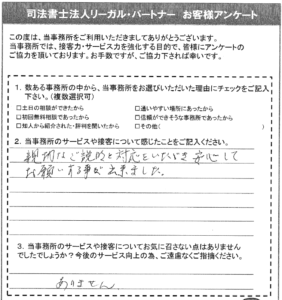 司法書士法人リーガル・パートナー　お客様アンケート
この度は、当事務所をご利用いただきましてありがとうございます。
当事務所では、接客力・サービス力を強化する目的で、皆様にアンケートの
ご協力を頂いております。お手数ですが、ご協力下されば幸いです。
1. 数ある事務所の中から、当事務所をお選びいただいた理由にチェックをご記入
下さい。（複数選択可）
□土日の相談ができたから　□通いやすい場所にあったから
□初回無料相談であったから　□信頼ができそうな事務所であったから
□知人から紹介された・評判を聞いたから　□その他（　　）
2. 当事務所のサービスや接客について感じたことをご記入ください。
親切なご説明と対応をいただき安心して
お願いする事が出来ました。
3. 当事務所のサービスや接客についてお気に召さない点はありません
でしたでしょうか？今後のサービス向上の為、ご遠慮なくご指摘ください。
ありません